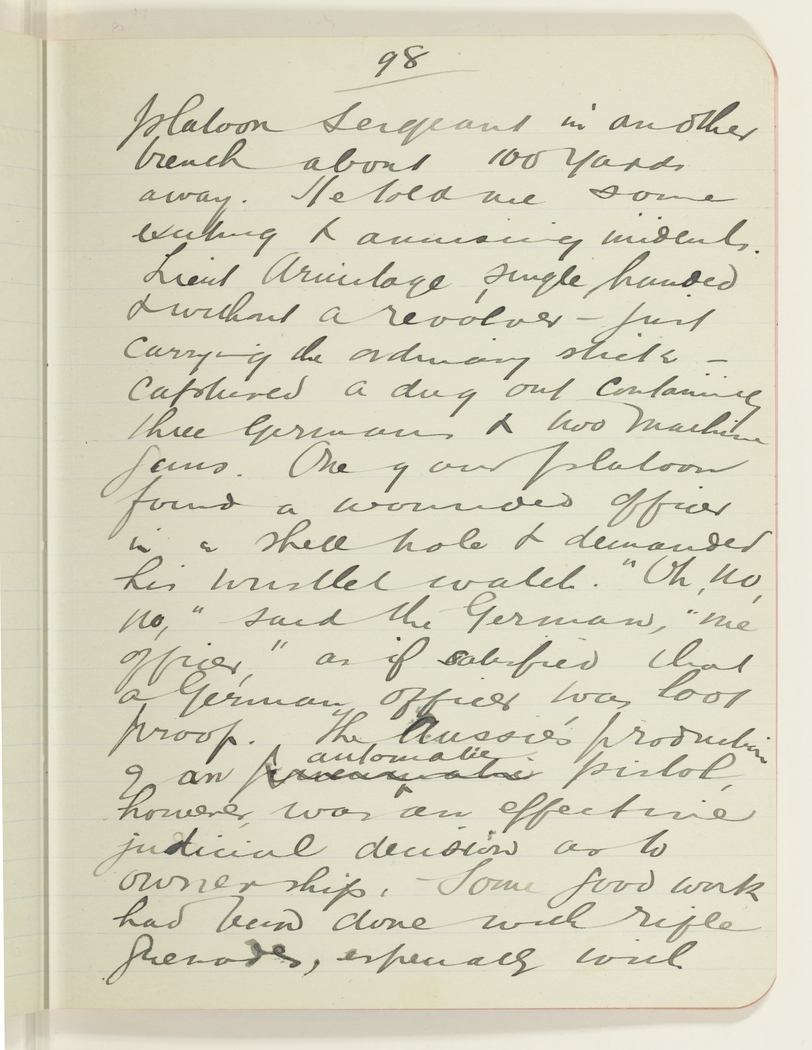 98
platoon sergeant in another
trench about 100 yards
away. He told me some
exciting & amusing incidents.
Lieut Armitage, single handed
& without a revolver – just
carrying the ordinary stick –
captured a dug out containing
three Germans & two machine
guns. One of our platoon
found a wounded officer
in a shell hole & demanded
his wristlet watch. "Oh, no,
no," said the German, "me
officer," as if satisfied that
a German officer was loot
proof. The Aussie's production
automatic
of an pneumatic pistol,
however, was an effective
judicial decision as to
ownership. – Some good work
had been done with rifle
grenades, especially with